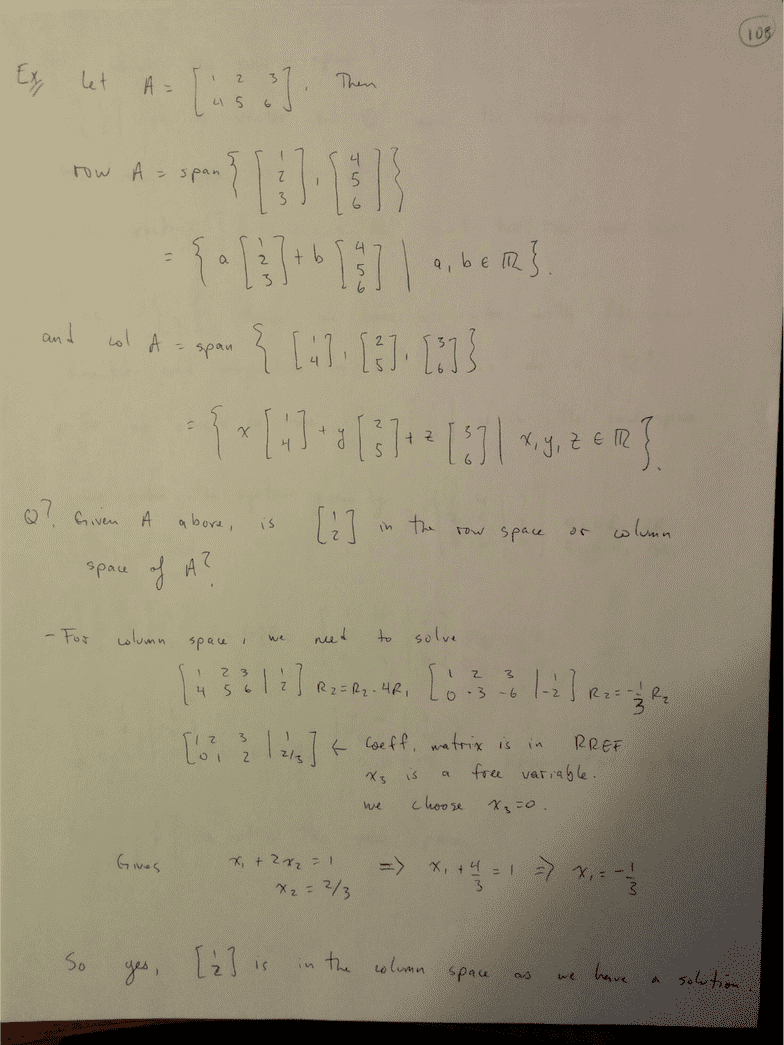 108
Ex Let A = [1 2 3; 4 5 6]. Then
row A = span { [1 2 3], [4 5 6] }
= { a [1 2 3] + b [4 5 6] | a, b ∈ ℝ }.
and col A = span { [1 4], [2 5], [3 6] }
= { x [1 4] + y [2 5] + z [3 6] | x, y, z ∈ ℝ }.
Q?. Given A above, is [1 2] in the row space or column
space of A?
- For column space, we need to solve
[1 2 3 | 1; 4 5 6 | 2] R2 = R2 - 4R1 [1 2 3 | 1; 0 -3 -6 | -2] R2 = -1/3 R2
[1 2 3 | 1; 0 1 2 | 2/3] ← Coeff. matrix is in RREF
x3 is a free variable.
we choose x3 = 0.
Gives x1 + 2x2 = 1 => x1 + 4/3 = 1 => x1 = -1/3
x2 = 2/3
So yes, [1 2] is in the column space as we have a solution.